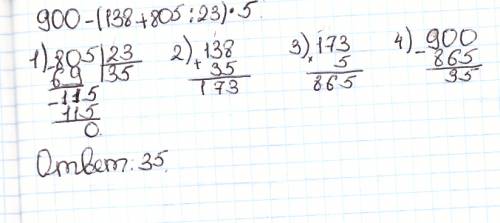 900-(138+805:23)·5.
1) -805 | 23   2) +138   3) ×173   4) -900
69 | 35   35   5   865
-115   173   865   35
115
0.
Ответ: 35.